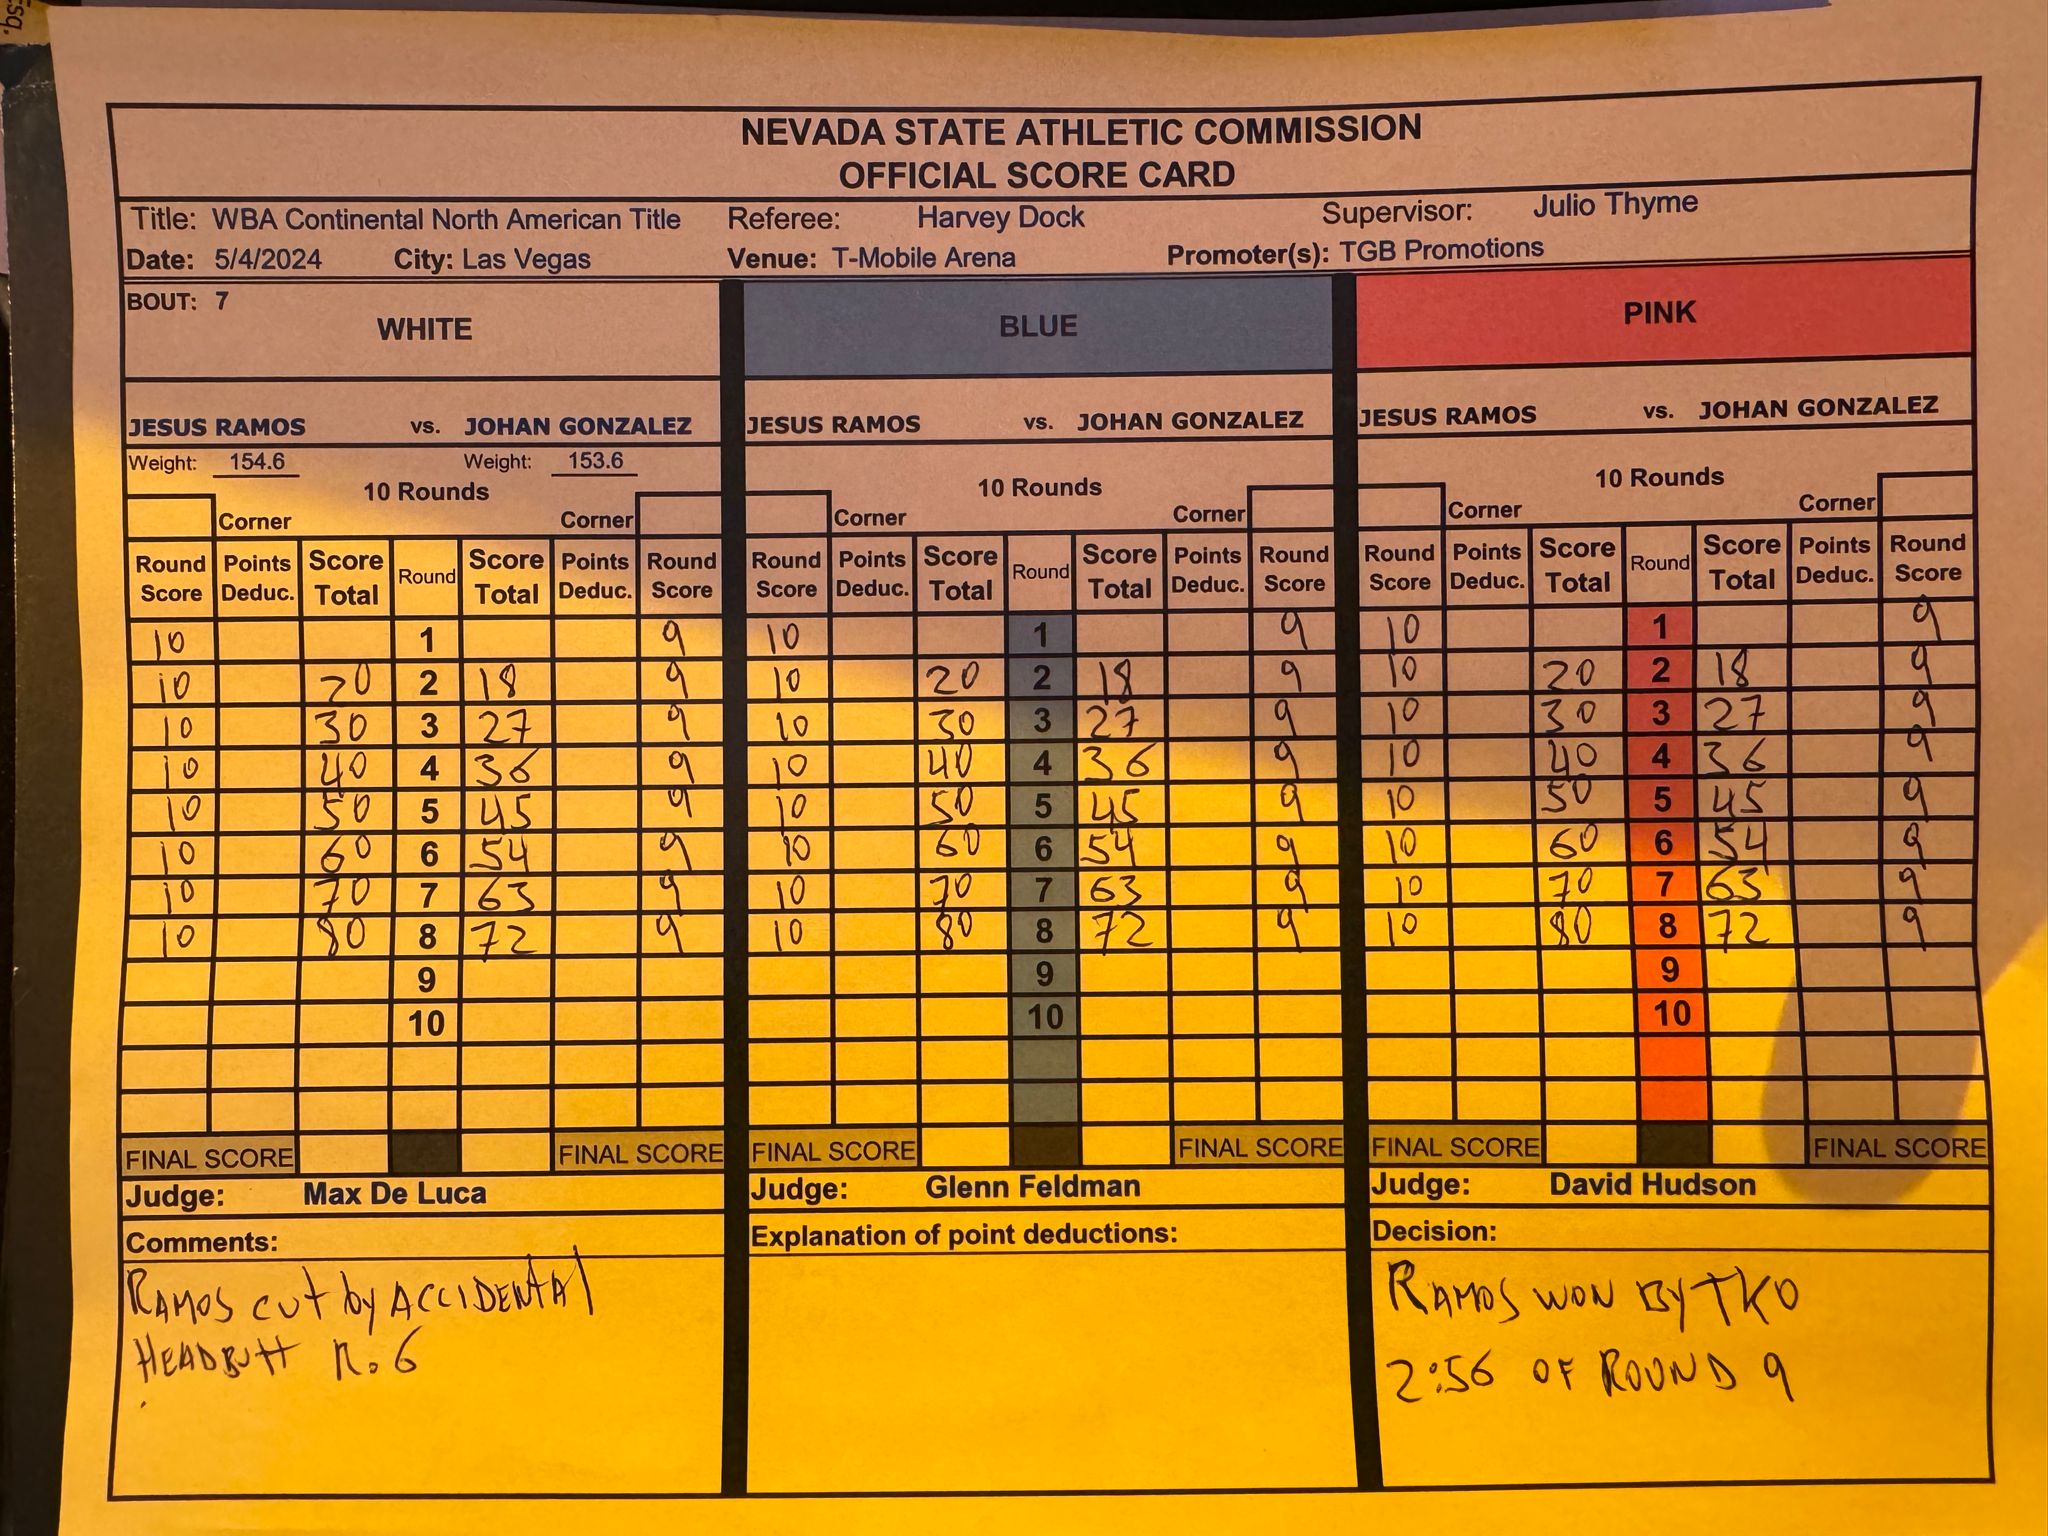 Esq.
NEVADA STATE ATHLETIC COMMISSION
OFFICIAL SCORE CARD
Title: WBA Continental North American Title Referee: Harvey Dock Supervisor: Julio Thyme
Date: 5/4/2024 City: Las Vegas Venue: T-Mobile Arena Promoter(s): TGB Promotions
BOUT: 7
WHITE BLUE PINK
JESUS RAMOS vs. JOHAN GONZALEZ JESUS RAMOS vs. JOHAN GONZALEZ JESUS RAMOS vs. JOHAN GONZALEZ
Weight: 154.6 Weight: 153.6
10 Rounds 10 Rounds 10 Rounds
Corner Corner Corner Corner Corner Corner
Round Points Score Round Score Points Round Round Points Score Round Score Points Round Round Points Score Round Score Points Round
Score Deduc. Total Total Deduc. Score Score Deduc. Total Total Deduc. Score Score Deduc. Total Total Deduc. Score
10 1 9 10 1 9 10 1 9
10 20 2 18 9 10 20 2 18 9 10 20 2 18 9
10 30 3 27 9 10 30 3 27 9 10 30 3 27 9
10 40 4 36 9 10 40 4 36 9 10 40 4 36 9
10 50 5 45 9 10 50 5 45 9 10 50 5 45 9
10 60 6 54 9 10 60 6 54 9 10 60 6 54 9
10 70 7 63 9 10 70 7 63 9 10 70 7 63 9
10 80 8 72 9 10 80 8 72 9 10 80 8 72 9
9 9 9
10 10 10
FINAL SCORE FINAL SCORE FINAL SCORE FINAL SCORE FINAL SCORE FINAL SCORE
Judge: Max De Luca Judge: Glenn Feldman Judge: David Hudson
Comments: Explanation of point deductions: Decision:
RAMOS cut by ACCIDENTAl RAMOS WON BY TKO
HEADBUtt R.6 2:56 OF ROUND 9